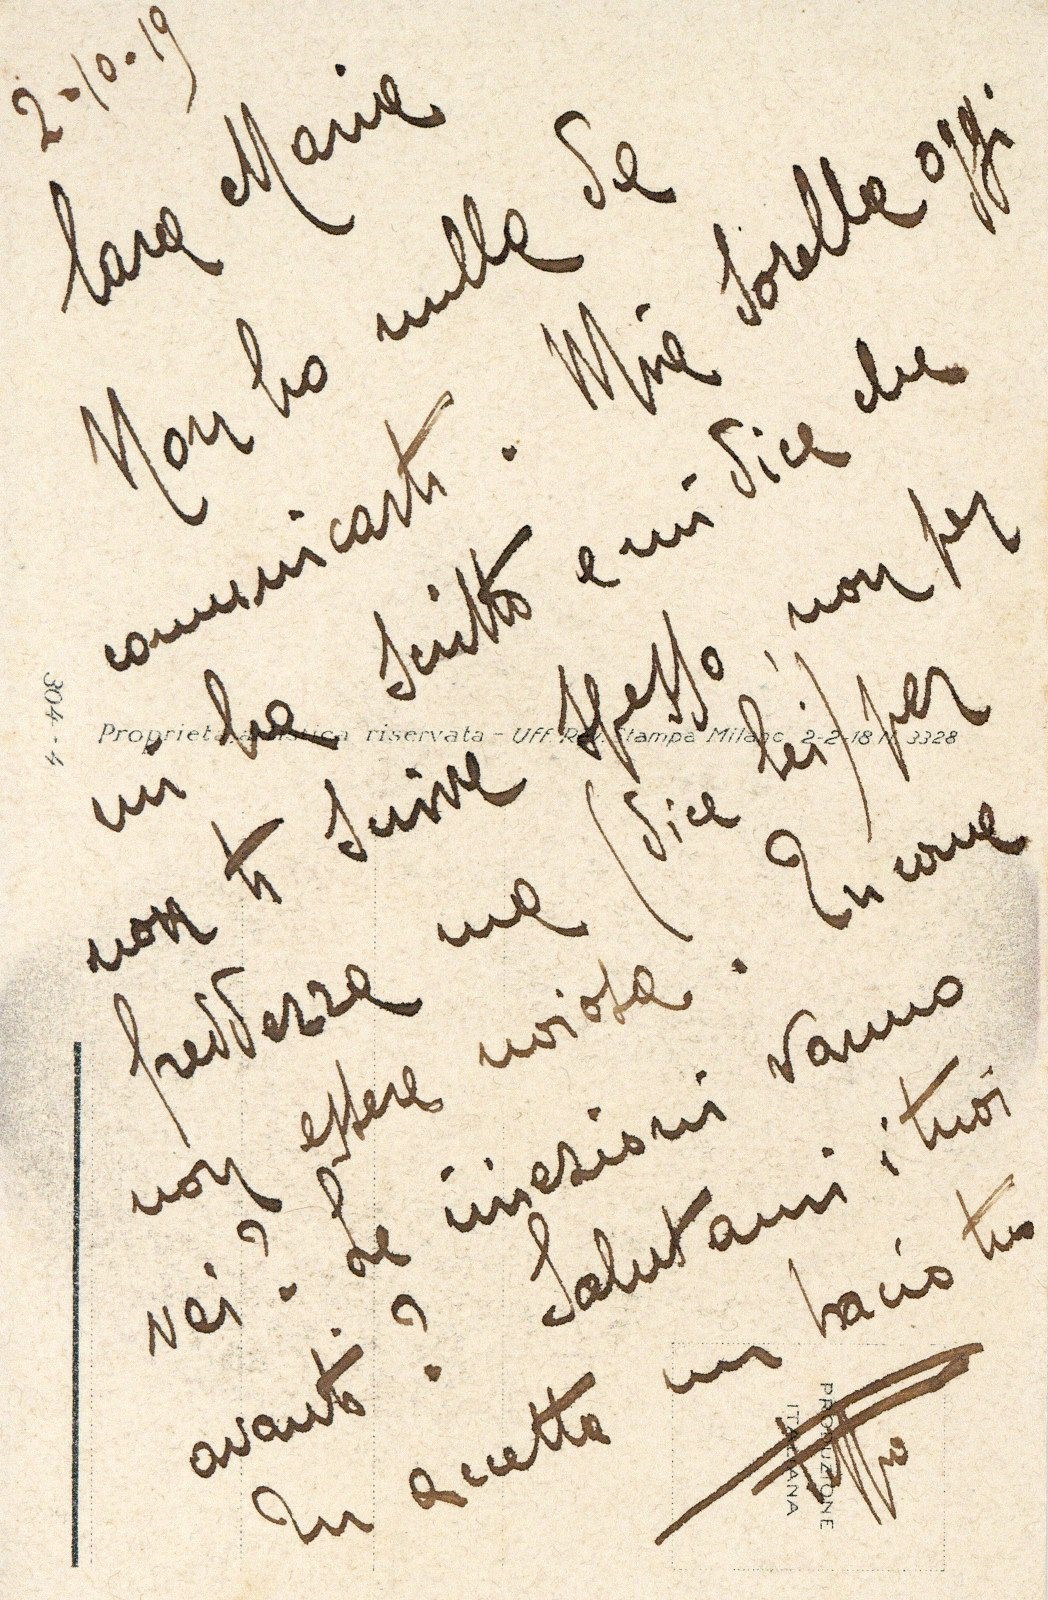 2-10-19
Cara Maria
Non ho nulla da
comunicarti. Mia Sorella oggi
mi ha scritto e mi dice che
non ti scrive spesso, non per
freddezza ma (dice lei) per
non essere noiosa. Tu come
vai? Le iniezioni vanno
avanti? Salutami i tuoi
Tu accetta un bacio tuo
304-4
Proprietà artistica riservata - Uff. Rev. Stampa Milano 2-2-18 N. 3328
PRODUZIONE
ITALIANA